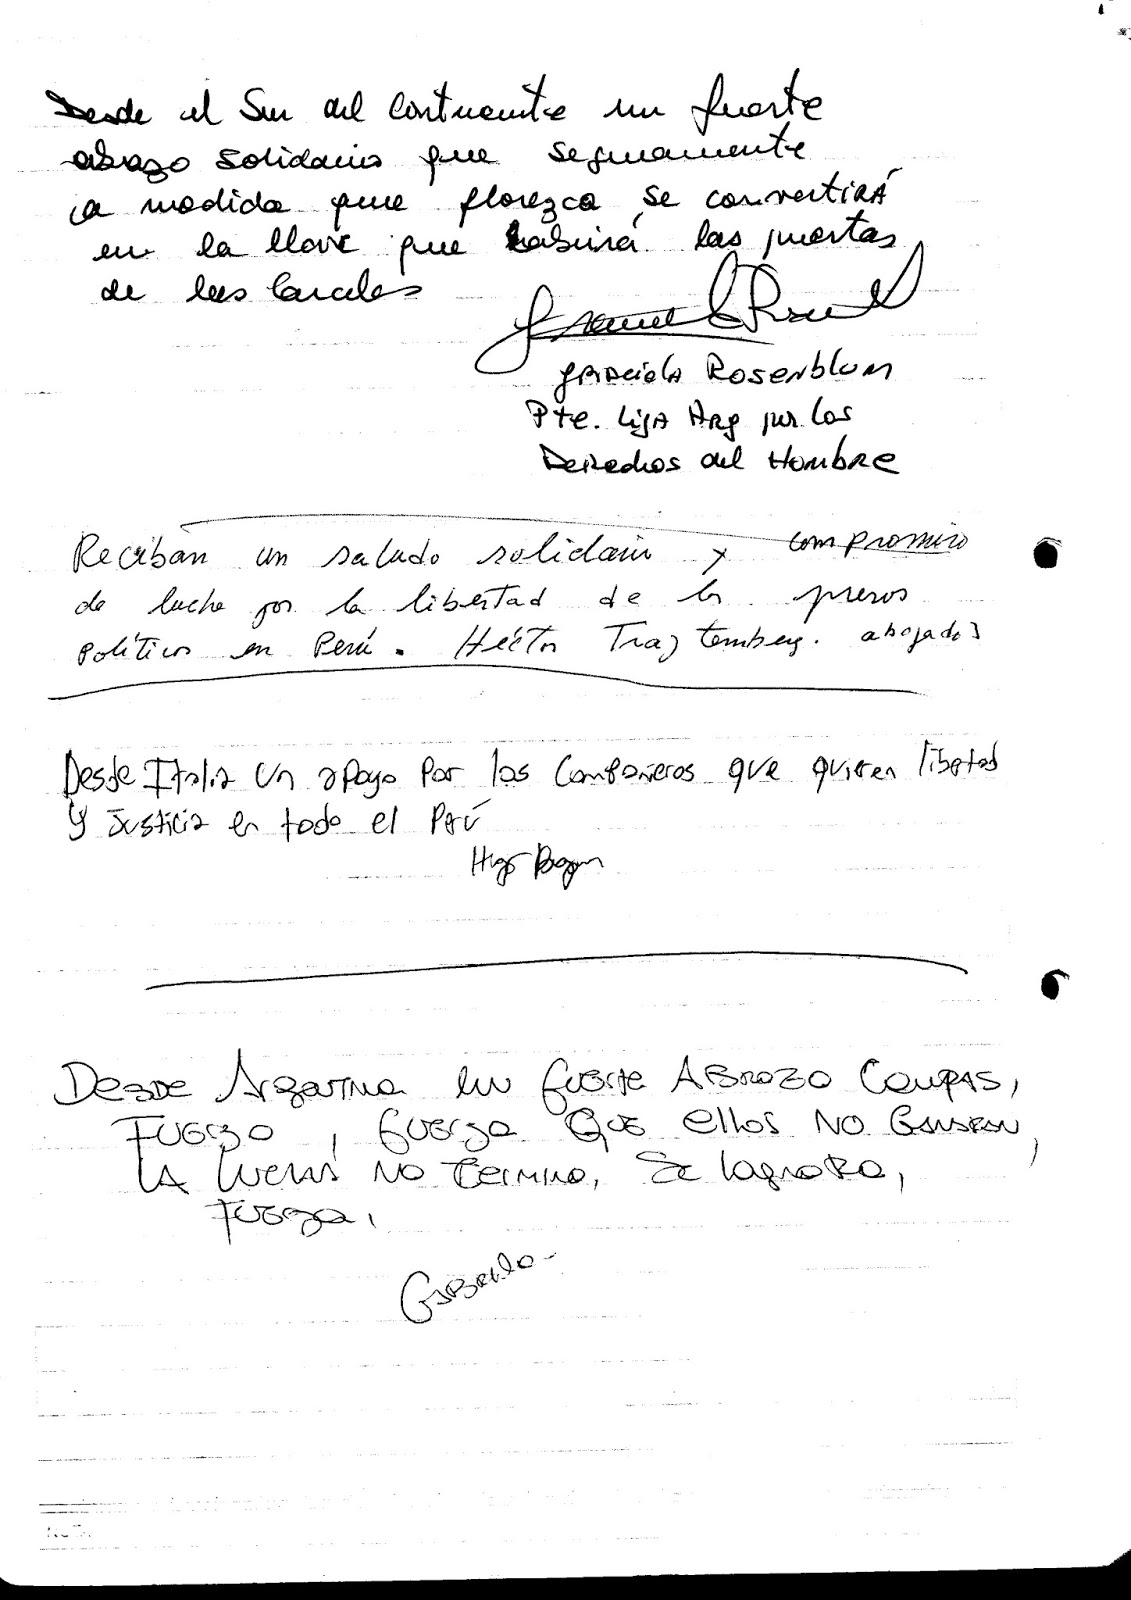 Desde el Sur del Continente un fuerte
abrazo solidario que seguramente
a medida que florezca se convertirá
en la llave que abrirá las puertas
de las Carceles
Graciela Rosenblum
Pte. Liga Arg por los
Derechos del Hombre
Reciban un saludo solidario y compromiso
de lucha por la libertad de los presos
políticos en Perú. Héctor Trajtemberg. abogado
Desde Italia un apoyo por los Compañeros que quieren libertad
y Justicia en todo el Perú
Desde Argentina un fuerte Abrazo Compas,
Fuerza, fuerza que ellos no ganaran,
la lucha no termino, se lograra,
Fuerza,